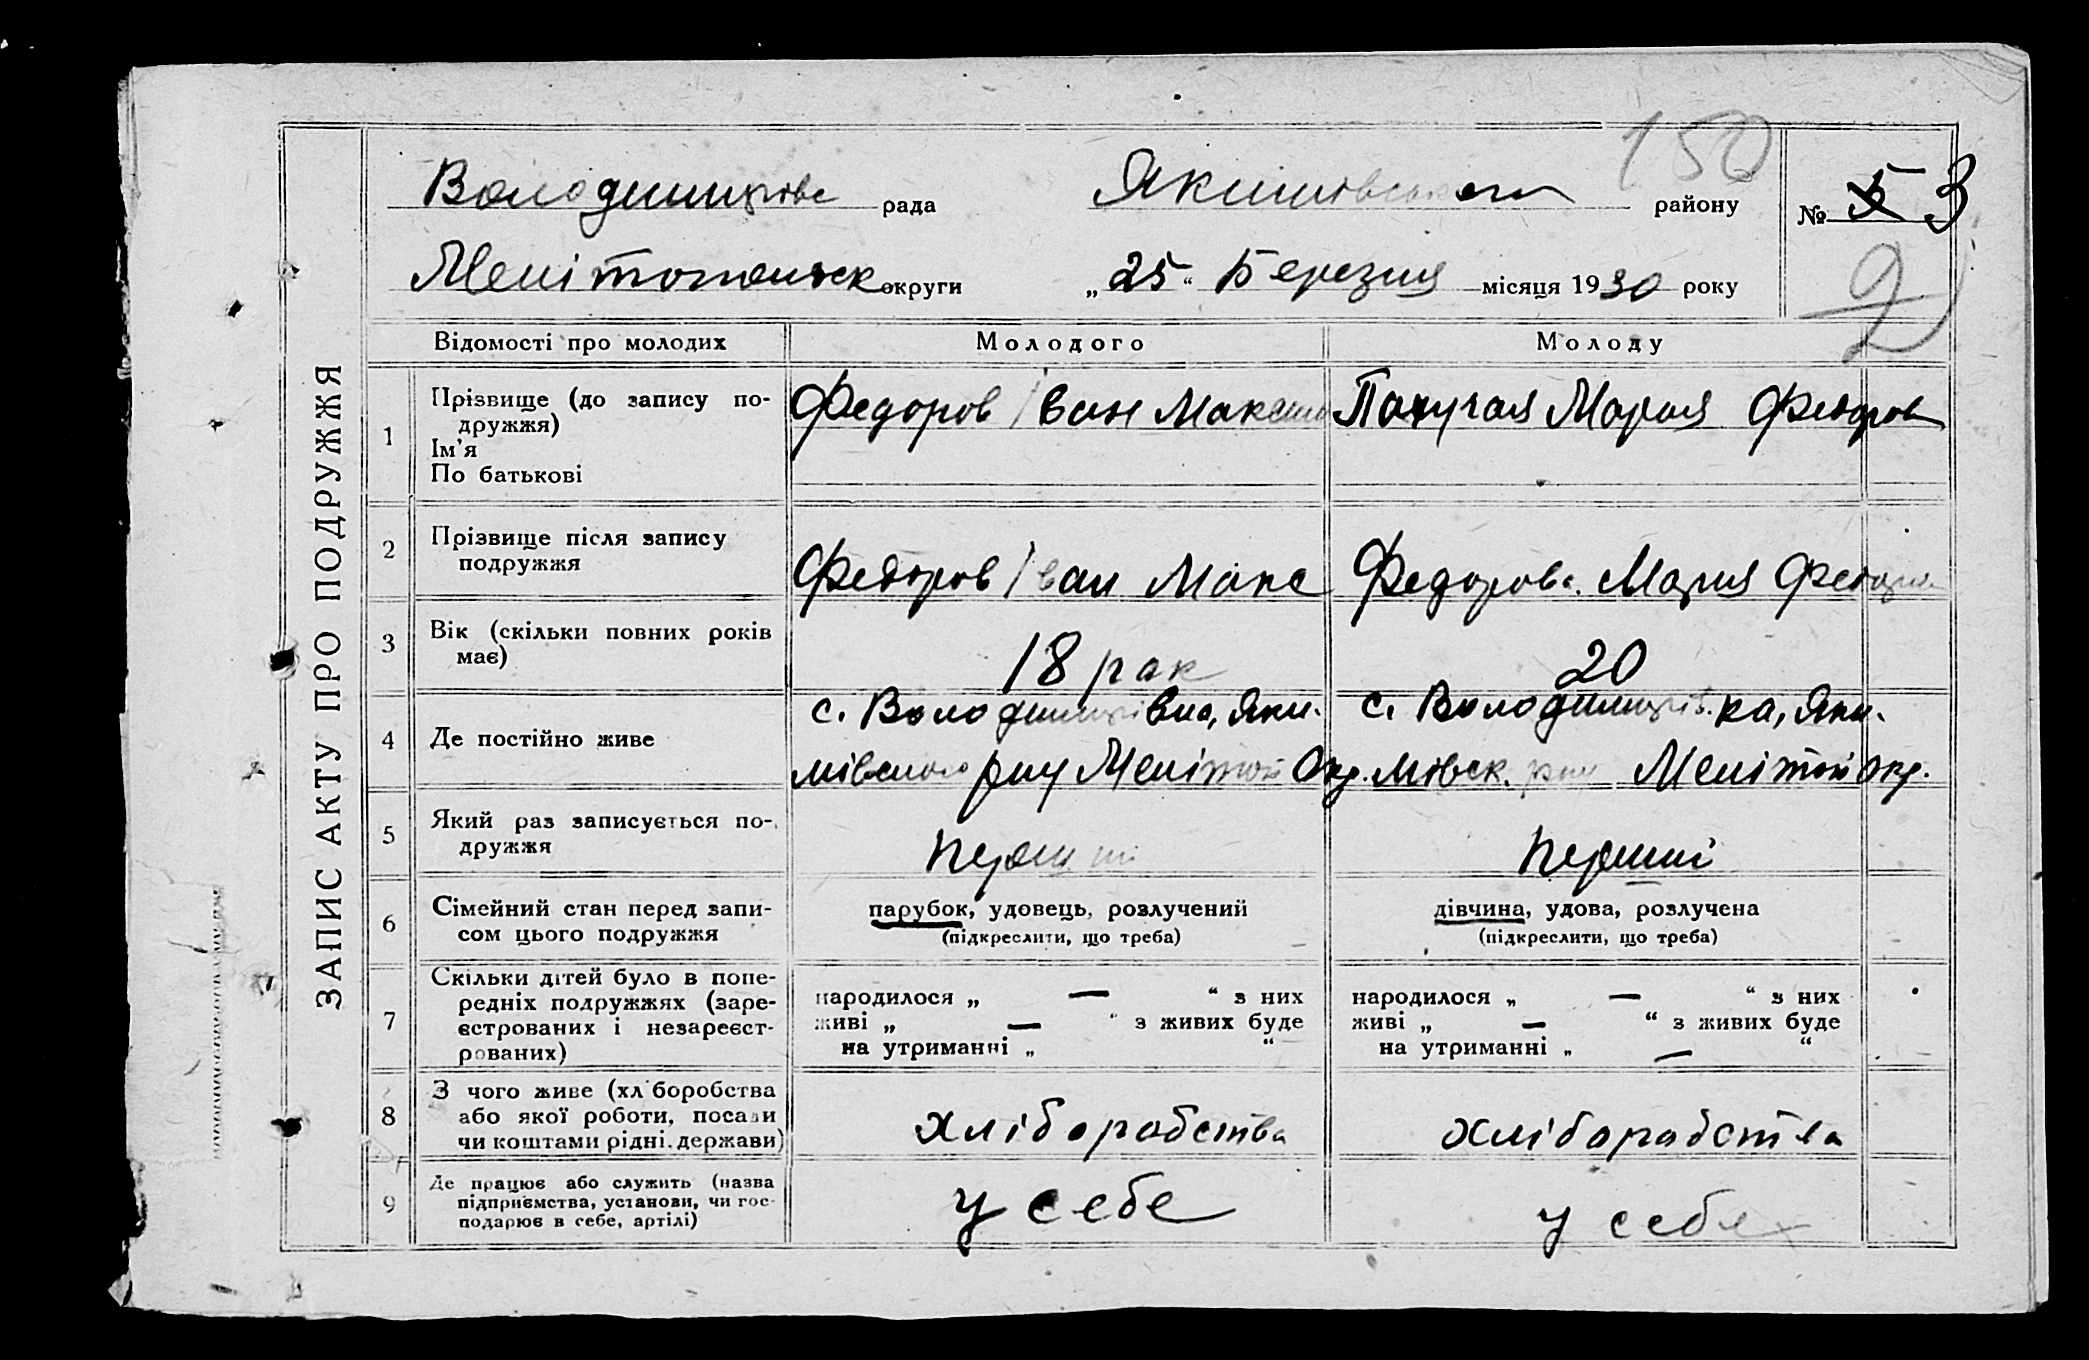 150
Володимирівс рада Якимівського району № 5 3
Мелітопольськ округи „25“ Березня місяця 1930 року
2
ЗАПИС АКТУ ПРО ПОДРУЖЖЯ
Відомості про молодих Молодого Молоду
1 Прізвище (до запису по-
дружжя)
Ім'я
По батькові
Федоров Іван Максим Марія Федоров
2 Прізвище після запису
подружжя
Федоров Іван Макс Федорова Мария Федоро
3 Вік (скільки повних років
має)
18 рок 20
4 Де постійно живе
с. Володимирівка, Яки-
мівського рну Мелітоп Окр.
с. Володимирівка, Яки-
мівськ. рну Мелітоп окр.
5 Який раз записується по-
дружжя
перший перший
6 Сімейний стан перед запи-
сом цього подружжя
парубок, удовець, розлучений
(підкреслити, що треба)
дівчина, удова, розлучена
(підкреслити, що треба)
7 Скільки дітей було в попе-
редніх подружжях (заре-
єстрованих і незареєст-
рованих)
народилося „ — “ з них
живі „ — “ з живих буде
на утриманні „ “
народилося „ — “ з них
живі „ — “ з живих буде
на утриманні „ — “
8 З чого живе (хл боробства
або якої роботи, посади
чи коштами рідні. держави)
хліборобства хліборобства
9 Де працює або служить (назва
підприємства, установи, чи гос-
подарює в себе, артілі)
у себе у себе